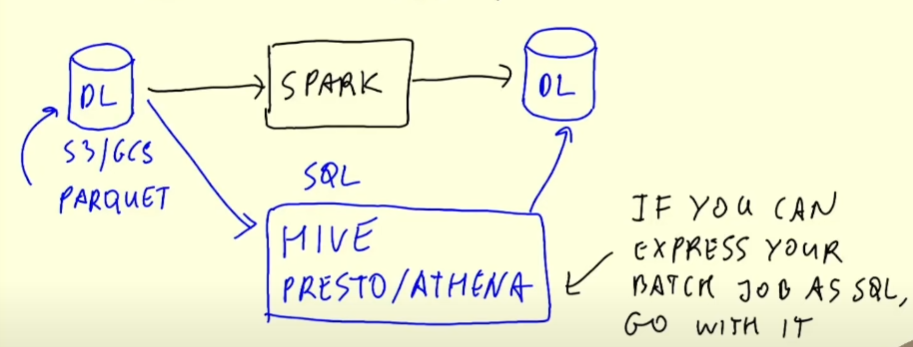 DL
SPARK
DL
S3/GCS
PARQUET
SQL
HIVE
PRESTO/ATHENA
IF YOU CAN
EXPRESS YOUR
BATCH JOB AS SQL,
GO WITH IT